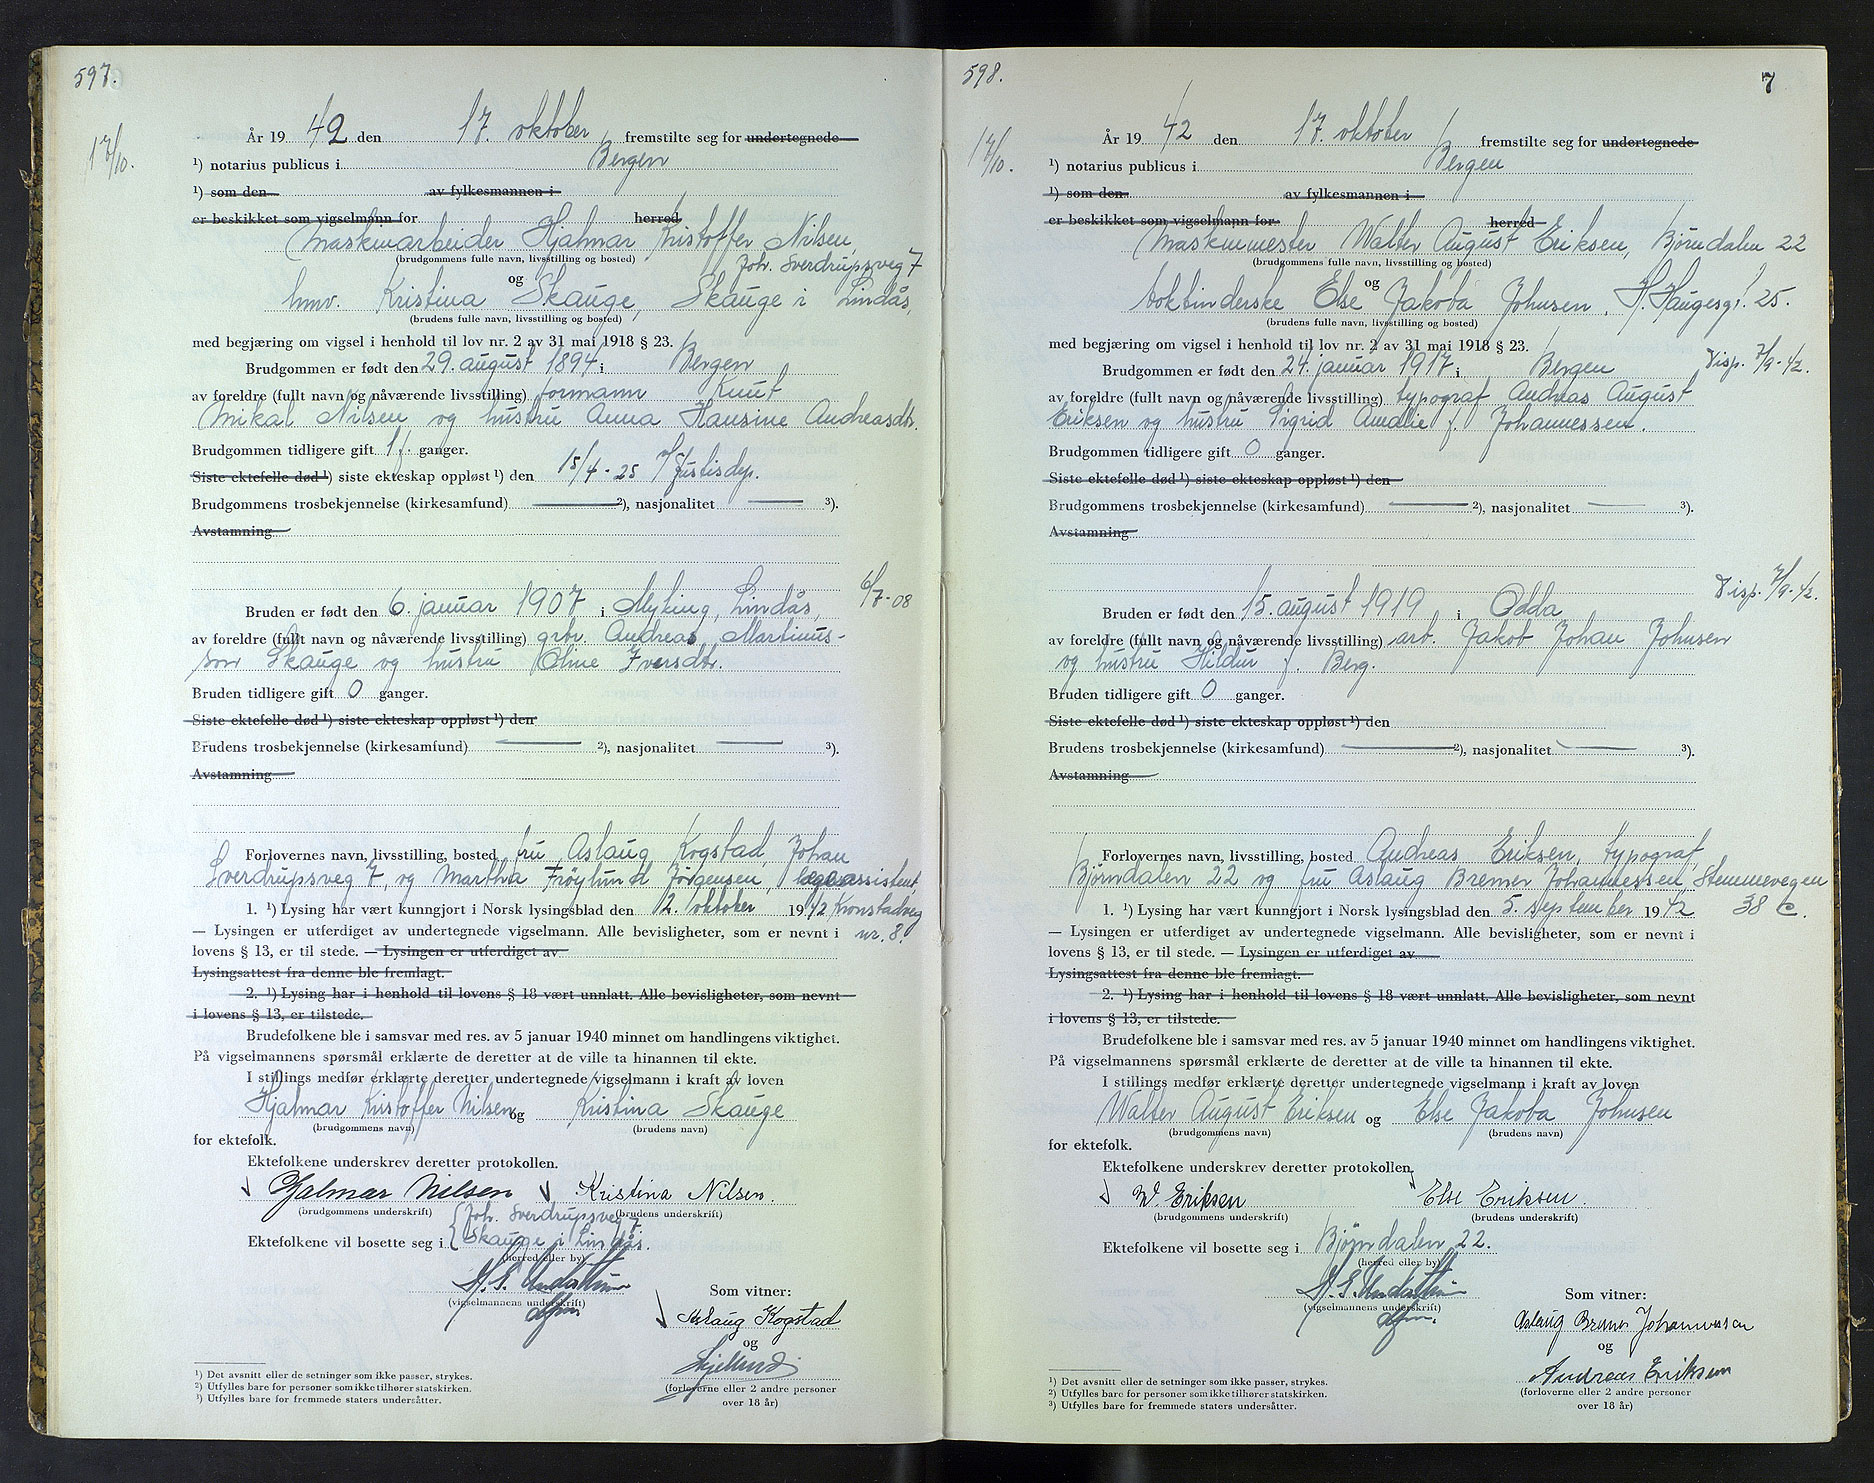 597.
17/10.
År 19 42 den 17. oktober fremstilte seg for undertegnede
¹) notarius publicus i Bergen
¹) som den av fylkesmannen i
er beskikket som vigselmann for herred
Maskinarbeider Hjalmar Kristoffer Nilsen,
(brudgommens fulle navn, livsstilling og bosted)
Joh. Sverdrupsveg 7
og
hmv. Kristina Skauge, Skauge i Lindås,
(brudens fulle navn, livsstilling og bosted)
med begjæring om vigsel i henhold til lov nr. 2 av 31 mai 1918 § 23.
Brudgommen er født den 29. august 1894 i Bergen
av foreldre (fullt navn og nåværende livsstilling) formann Knut
Mikal Nilsen og hustru Anna Hansine Andreasdtr.
Brudgommen tidligere gift 1 f. ganger.
Siste ektefelle død ¹) siste ekteskap oppløst ¹) den 15/4 - 25 v/ Justisdep.
Brudgommens trosbekjennelse (kirkesamfund) ²), nasjonalitet ³).
Avstamning
6/7-08
Bruden er født den 6. januar 1907 i Myking, Lindås,
av foreldre (fullt navn og nåværende livsstilling) grbr. Andreas Martinus-
son Skauge og hustru Oline Iversdtr.
Bruden tidligere gift 0 ganger.
Siste ektefelle død ¹) siste ekteskap oppløst ¹) den
Brudens trosbekjennelse (kirkesamfund) ²), nasjonalitet ³).
Avstamning
Forlovernes navn, livsstilling, bosted fru Aslaug Kogstad Johan
Sverdrupsveg 7, og Martha Frøylund Jørgensen assistent,
1. ¹) Lysing har vært kunngjort i Norsk lysingsblad den 2. oktober 1942 Kronstadveg
— Lysingen er utferdiget av undertegnede vigselmann. Alle bevisligheter, som er nevnt i nr. 8.
lovens § 13, er til stede. — Lysingen er utferdiget av
Lysingsattest fra denne ble fremlagt.
2. ¹) Lysing har i henhold til lovens § 18 vært unnlatt. Alle bevisligheter, som nevnt
i lovens § 13, er tilstede.
Brudefolkene ble i samsvar med res. av 5 januar 1940 minnet om handlingens viktighet.
På vigselmannens spørsmål erklærte de deretter at de ville ta hinannen til ekte.
I stillings medfør erklærte deretter undertegnede vigselmann i kraft av loven
Hjalmar Kristoffer Nilsen og Kristina Skauge
(brudgommens navn) (brudens navn)
for ektefolk.
Ektefolkene underskrev deretter protokollen.
Hjalmar Nilsen Kristina Nilsen.
(brudgommens underskrift) (brudens underskrift)
Joh. Sverdrupsveg 7
Ektefolkene vil bosette seg i Skauge i Lindås.
(herred eller by)
(vigselmannens underskrift)
Som vitner:
Aslaug Kogstad
og
(forloverne eller 2 andre personer
over 18 år)
¹) Det avsnitt eller de setninger som ikke passer, strykes.
²) Utfylles bare for personer som ikke tilhører statskirken.
³) Utfylles bare for fremmede staters undersåtter.
598.
7
17/10.
År 19 42 den 17. oktober fremstilte seg for undertegnede
¹) notarius publicus i Bergen
¹) som den av fylkesmannen i
er beskikket som vigselmann for herred
Maskinmester Walter August Eriksen, Bjørndalen 22
(brudgommens fulle navn, livsstilling og bosted)
og
bokbinderske Else Jakoba Johnsen, H. Haugesgt. 25.
(brudens fulle navn, livsstilling og bosted)
med begjæring om vigsel i henhold til lov nr. 2 av 31 mai 1918 § 23.
Brudgommen er født den 24. januar 1917 i Bergen Disp. 7/9-42.
av foreldre (fullt navn og nåværende livsstilling) typograf Andreas August
Eriksen og hustru Sigrid Amalie f. Johannessen.
Brudgommen tidligere gift 0 ganger.
Siste ektefelle død ¹) siste ekteskap oppløst ¹) den
Brudgommens trosbekjennelse (kirkesamfund) ²), nasjonalitet ³).
Avstamning
Disp. 7/9-42.
Bruden er født den 15. august 1919 i Odda
av foreldre (fullt navn og nåværende livsstilling) arb. Jakob Johan Johnsen
og hustru Hildur f. Berg.
Bruden tidligere gift 0 ganger.
Siste ektefelle død ¹) siste ekteskap oppløst ¹) den
Brudens trosbekjennelse (kirkesamfund) ²), nasjonalitet ³).
Avstamning
Forlovernes navn, livsstilling, bosted Andreas Eriksen, typograf,
Bjørndalen 22 og fru Aslaug Bremer Johannessen Stemmevegen
1. ¹) Lysing har vært kunngjort i Norsk lysingsblad den 5. september 1942 38 c.
— Lysingen er utferdiget av undertegnede vigselmann. Alle bevisligheter, som er nevnt i
lovens § 13, er til stede. — Lysingen er utferdiget av
Lysingsattest fra denne ble fremlagt.
2. ¹) Lysing har i henhold til lovens § 18 vært unnlatt. Alle bevisligheter, som nevnt
i lovens § 13, er tilstede.
Brudefolkene ble i samsvar med res. av 5 januar 1940 minnet om handlingens viktighet.
På vigselmannens spørsmål erklærte de deretter at de ville ta hinannen til ekte.
I stillings medfør erklærte deretter undertegnede vigselmann i kraft av loven
Walter August Eriksen og Else Jakoba Johnsen
(brudgommens navn) (brudens navn)
for ektefolk.
Ektefolkene underskrev deretter protokollen.
W. Eriksen Else Eriksen.
(brudgommens underskrift) (brudens underskrift)
Ektefolkene vil bosette seg i Bjørndalen 22.
(herred eller by)
(vigselmannens underskrift)
Som vitner:
Aslaug Bremer Johannessen
og
Andreas Eriksen
(forloverne eller 2 andre personer
over 18 år)
¹) Det avsnitt eller de setninger som ikke passer, strykes.
²) Utfylles bare for personer som ikke tilhører statskirken.
³) Utfylles bare for fremmede staters undersåtter.